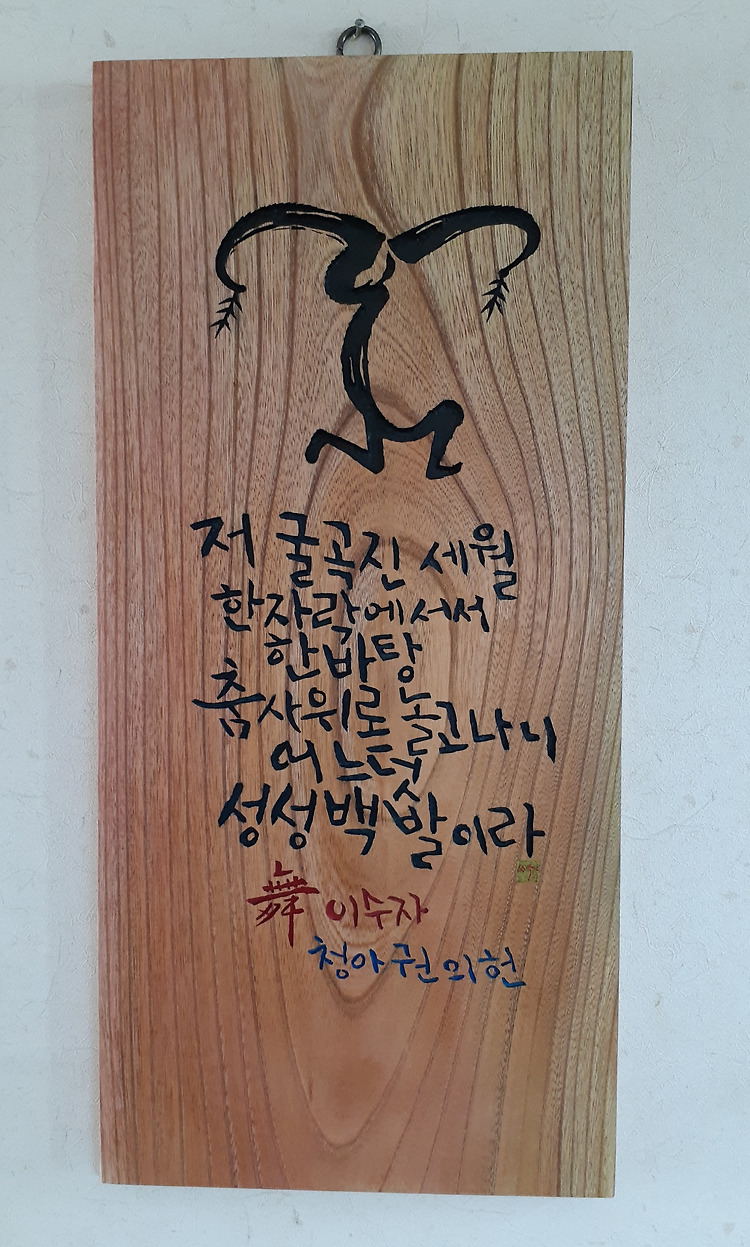 저 굴곡진 세월
한자락에 서서
한바탕
춤사위로 놀고나니
어느덧
성성백발이라
舞 이수자
청아 권의헌